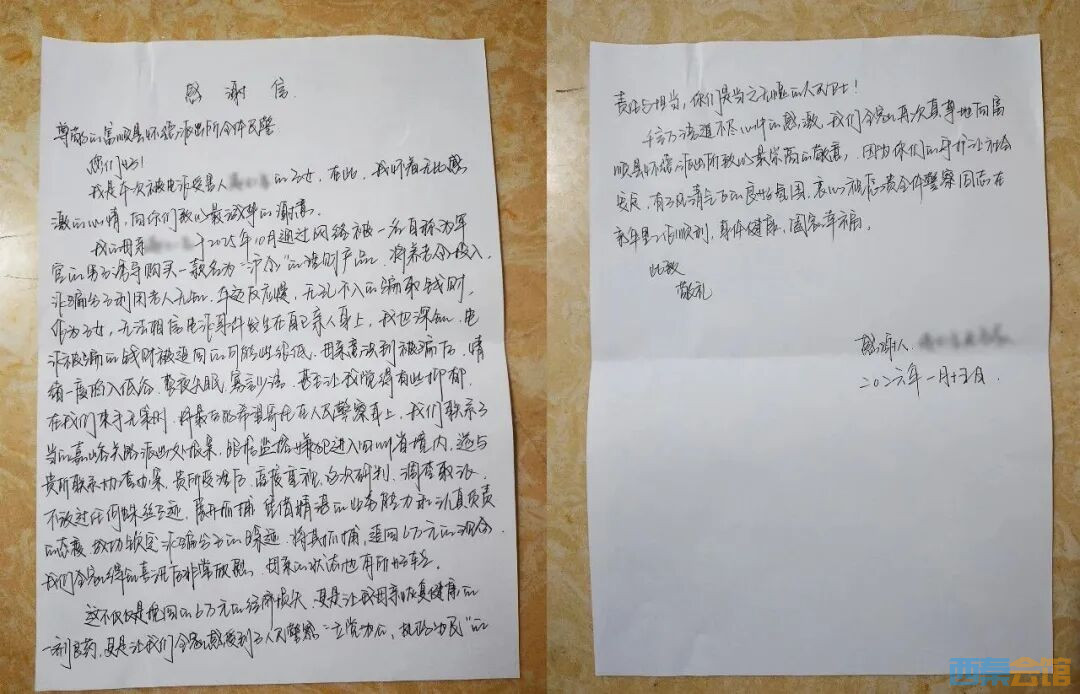 感谢信
尊敬的富顺县怀德派出所全体民警
您们好!
我是本次被电诈受害人 的子女,在此,我怀着无比感
激的心情,向你们致以最诚挚的谢意。
我的母亲 于2025年10月通过网络被一名自称为军
官的男子诱导购买一款名为“沪金”的读财产品,将养老金投入,
诈骗分子利用老人无知,年迈反应慢,无孔不入的骗取钱财,
作为子女,无法相信电诈事件发生在自己亲人身上,我也深知,电
诈被骗的钱财被追回的可能性很低,母亲意识到被骗后,情
绪一度陷入低谷,整夜失眠,寡言少语,甚至让我觉得有些抑郁,
在我们束手无策时,将最后的希望寄托在人民警察身上,我们联系了
当地嘉峪关路派出所报案,跟检监控嫌犯进入四川省境内,遂与
贵所联系协查办案,贵所受理后,高度重视,多次研判,调查取证,
不放过任何蛛丝马迹,展开抓捕,凭借精湛的业务能力和认真负责
的态度,成功锁定诈骗分子的踪迹,将其抓捕,追回6万元的现金,
我们全家得知喜讯后非常欣慰,母亲的状态也有所好转。
这不仅仅是挽回的6万元的经济损失,更是让我母亲恢复健康的
一剂良药,更是让我们全家感受到了人民警察“立党为公、执政为民”的
责任与担当,你们是当之无愧的人民卫士!
千言万语道不尽心中的感激,我们全家再次真挚地向富
顺县怀德派出所致以最崇高的敬意,因为你们的守护让社会
安定,有了风清气正的良好氛围,衷心祝愿贵全体警察同志在
来年里工作顺利,身体健康,阖家幸福。
此致
敬礼
感谢人
二〇二六年一月十五日.
西秦会馆